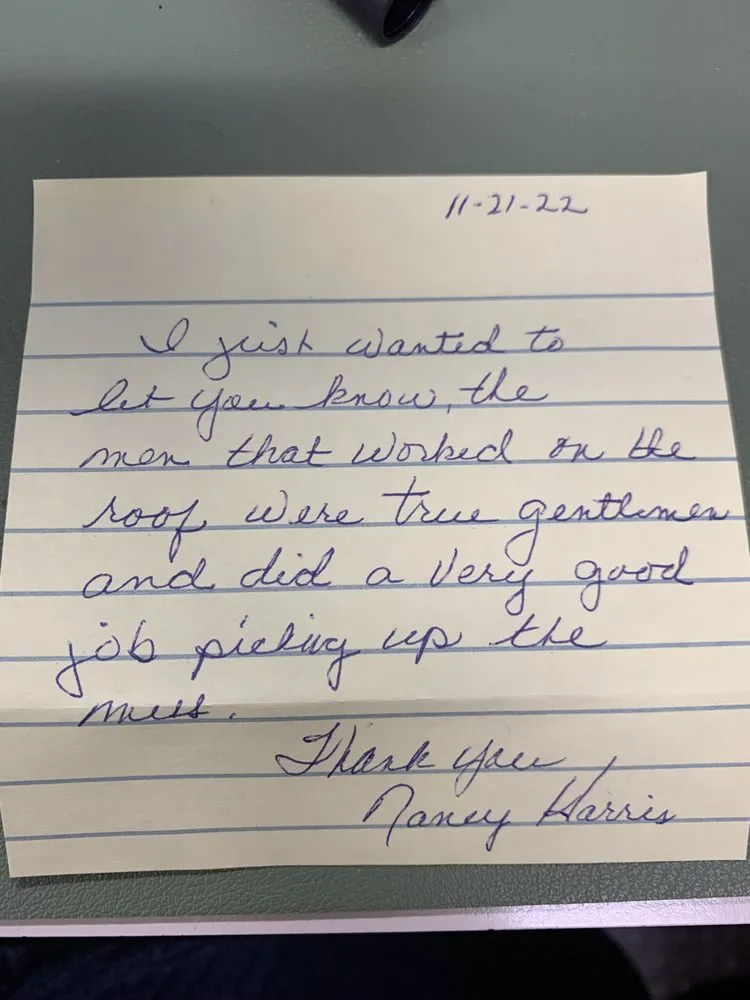 11-21-22
I just wanted to
let you know, the
men that worked on the
roof were true gentlemen
and did a very good
job picking up the
mess.
Thank you,
Nancy Harris